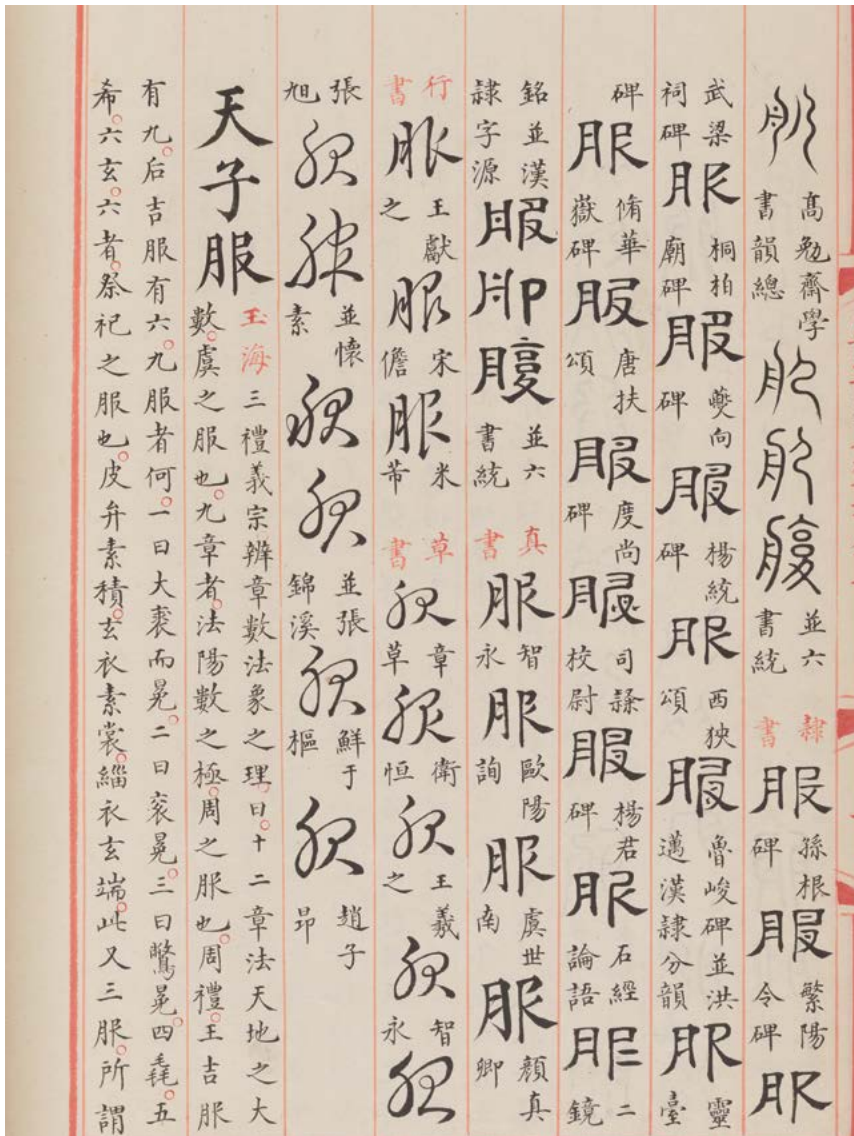 服 高勉齋學書韻總 服 服 服 並六書統 隸書 服 孫根碑 服 繁陽令碑 服
武梁祠碑 服 桐柏廟碑 服 夔向碑 服 楊統碑 服 西狹頌 服 魯峻碑並洪邁漢隸分韻 服 靈臺
碑 服 脩華嶽碑 服 唐扶頌 服 度尚碑 服 司隸校尉 服 楊君碑 服 石經論語 服 二鏡
銘並漢隸字源 服 服 服 並六書統 真書 服 智永 服 歐陽詢 服 虞世南 服 顏真卿
行書 服 王獻之 服 宋儋 服 米芾 草書 服 章草 服 衛恒 服 王羲之 服 智永 服
張旭 服 服 並懷素 服 服 並張錦溪 服 鮮于樞 服 趙子昂
天子服
玉海三禮義宗辨章數法象之理曰十二章法天地之大
數虞之服也九章者法陽數之極周之服也周禮王吉服
有九后吉服有六九服者何一曰大裘而冕二曰衮冕三曰鷩冕四毳五
希六玄六者祭祀之服也皮弁素積玄衣素裳緇衣玄端此又三服所謂